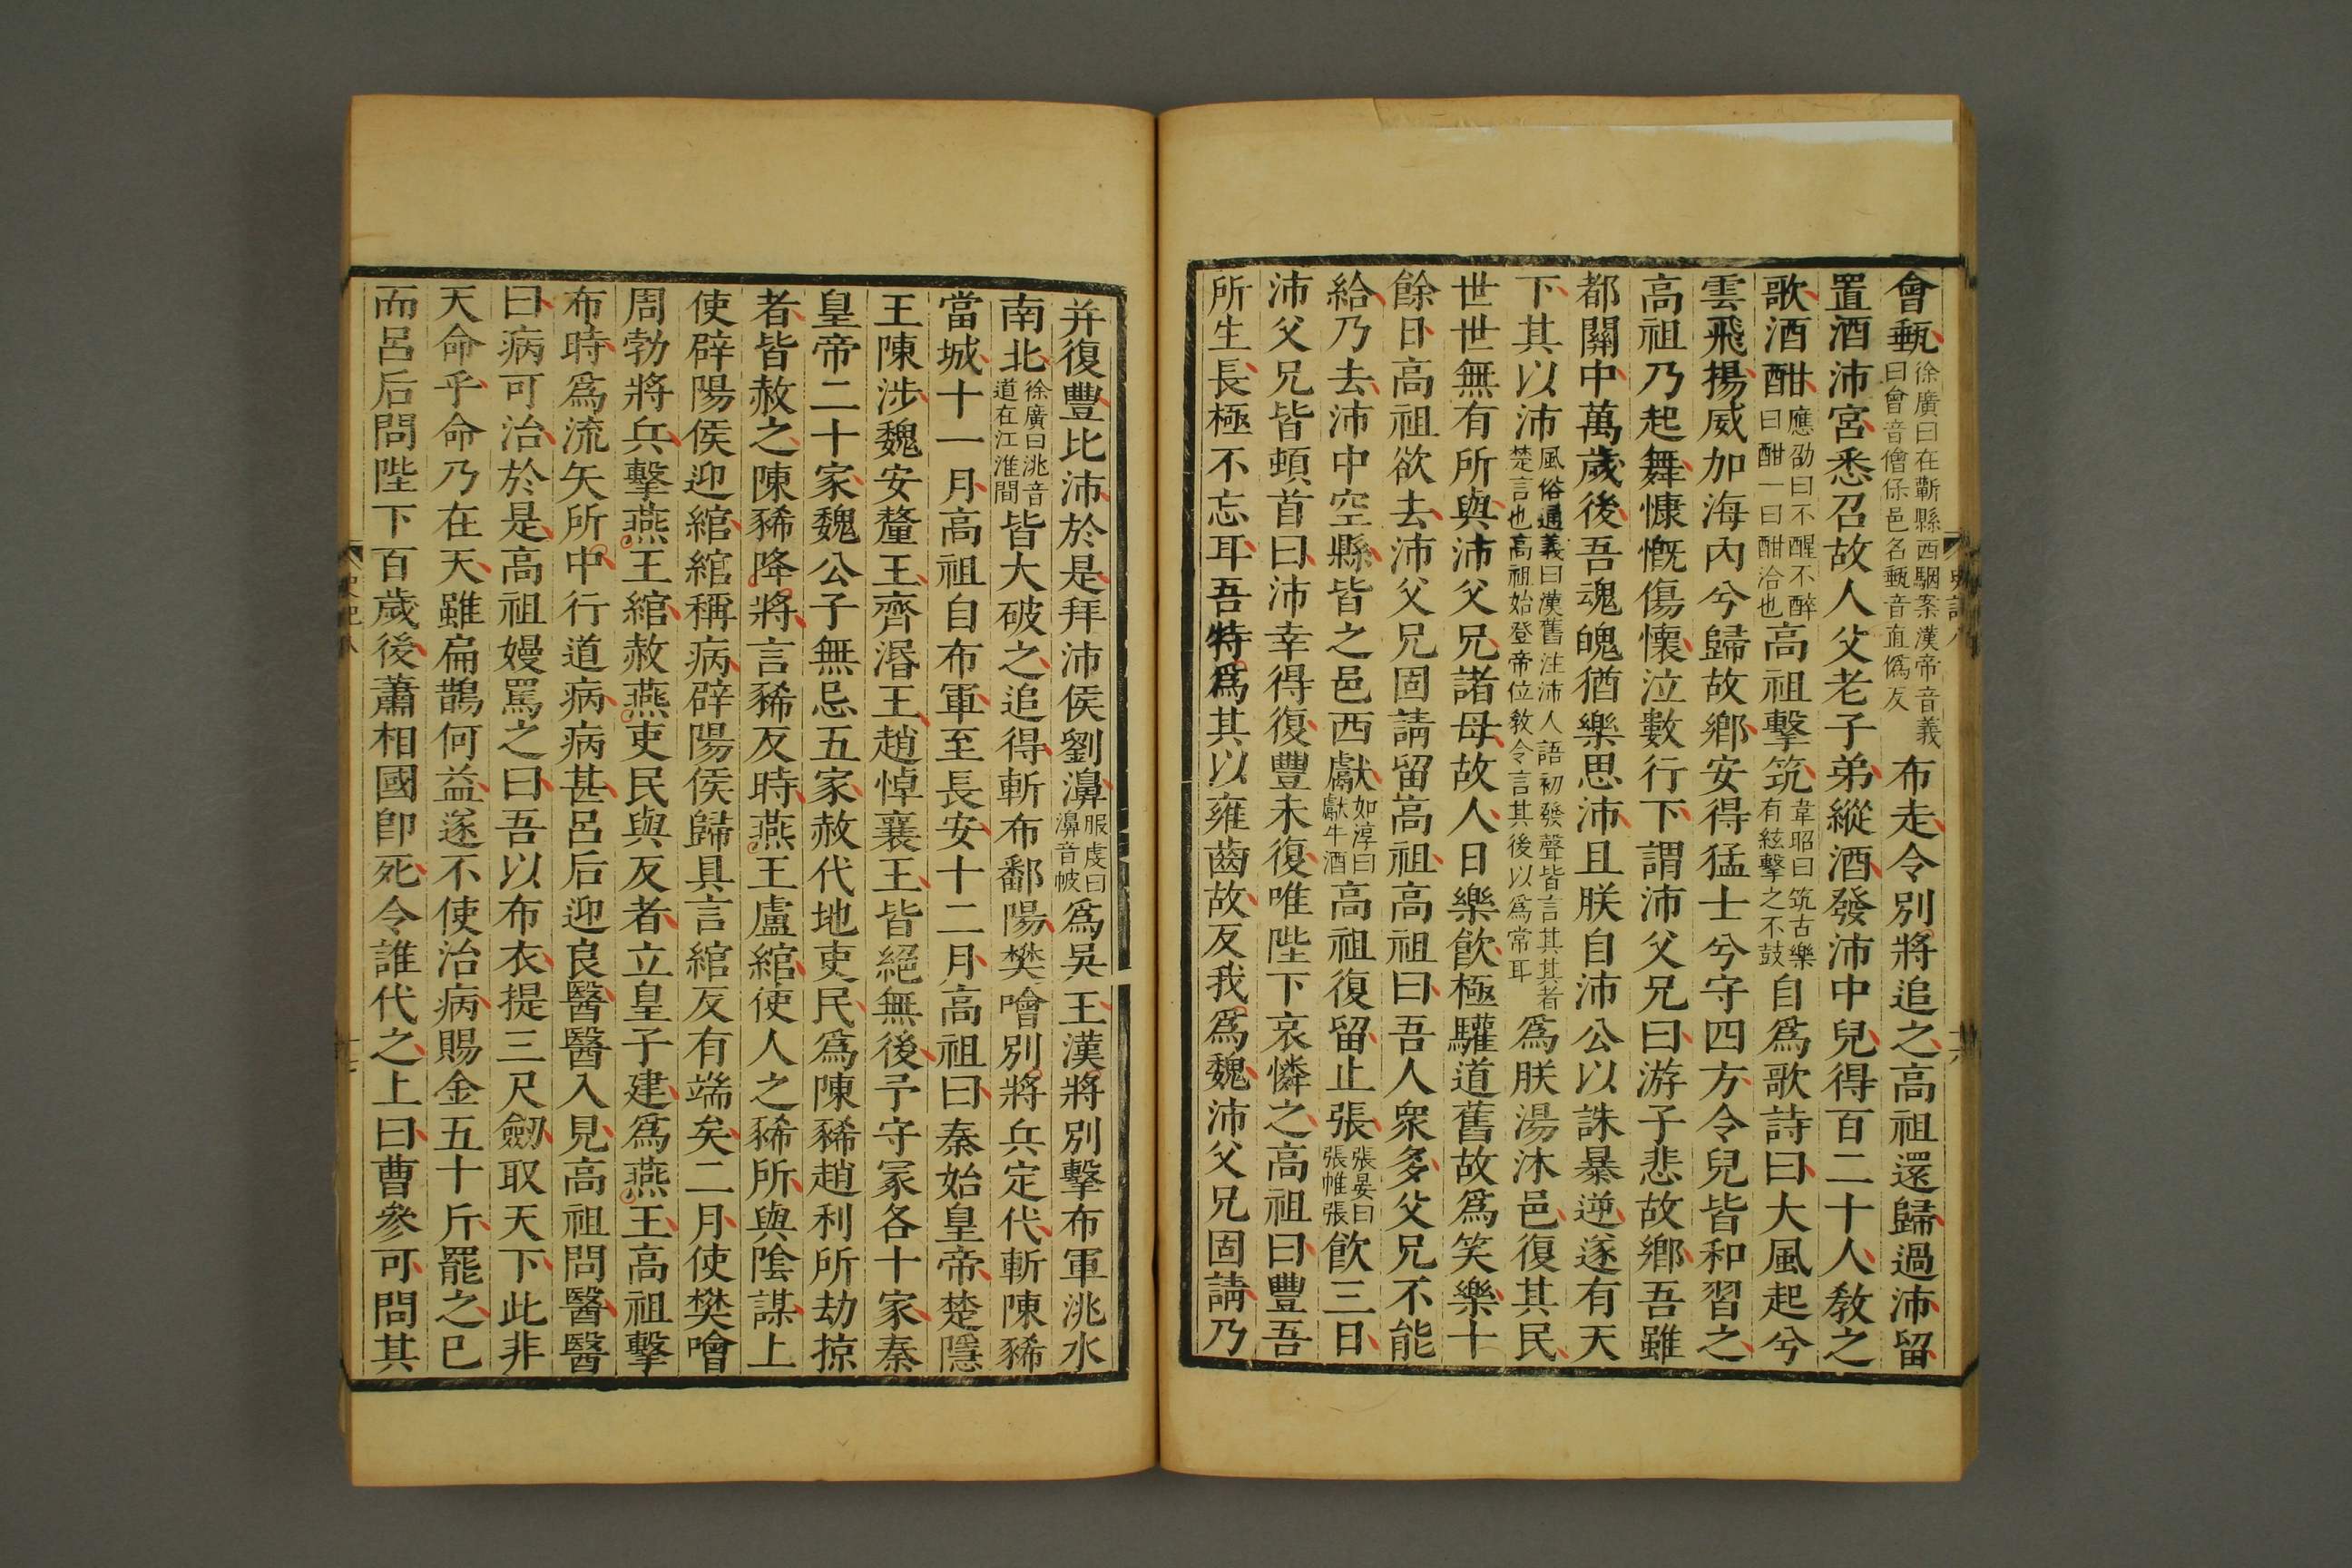 會甀徐廣曰在蘄縣西駰案漢帝音義曰會音儈保邑名甀音直僞反布走令別將追之高祖還歸過沛留
置酒沛宮悉召故人父老子弟縱酒發沛中兒得百二十人敎之
歌酒酣應劭曰不醒不醉曰酣一曰酣洽也高祖擊筑韋昭曰筑古樂有絃擊之不鼓自爲歌詩曰大風起兮
雲飛揚威加海內兮歸故鄉安得猛士兮守四方令兒皆和習之
高祖乃起舞慷慨傷懷泣數行下謂沛父兄曰游子悲故鄉吾雖
都關中萬歲後吾魂魄猶樂思沛且朕自沛公以誅暴逆遂有天
下其以沛風俗通義曰漢舊注沛人語初發聲皆言其其者楚言也高祖始登帝位敎令言其後以爲常耳爲朕湯沐邑復其民
世世無有所與沛父兄諸母故人日樂飮極驩道舊故爲笑樂十
餘日高祖欲去沛父兄固請留高祖高祖曰吾人衆多父兄不能
給乃去沛中空縣皆之邑西獻如淳曰獻牛酒高祖復留止張張晏曰張帷張飮三日
沛父兄皆頓首曰沛幸得復豐未復唯陛下哀憐之高祖曰豐吾
所生長極不忘耳吾特爲其以雍齒故反我爲魏沛父兄固請乃
并復豐比沛於是拜沛侯劉濞服虔曰濞音帔爲吳王漢將別擊布軍洮水
南北徐廣曰洮音道在江淮間皆大破之追得斬布鄱陽樊噲別將兵定代斬陳豨
當城十一月高祖自布軍至長安十二月高祖曰秦始皇帝楚隱
王陳涉魏安釐王齊湣王趙悼襄王皆絕無後予守冢各十家秦
皇帝二十家魏公子無忌五家赦代地吏民爲陳豨趙利所劫掠
者皆赦之陳豨降將言豨反時燕王盧綰使人之豨所與陰謀上
使辟陽侯迎綰綰稱病辟陽侯歸具言綰反有端矣二月使樊噲
周勃將兵擊燕王綰赦燕吏民與反者立皇子建爲燕王高祖擊
布時爲流矢所中行道病病甚呂后迎良醫醫入見高祖問醫醫
曰病可治於是高祖嫚罵之曰吾以布衣提三尺劒取天下此非
天命乎命乃在天雖扁鵲何益遂不使治病賜金五十斤罷之已
而呂后問陛下百歲後蕭相國卽死令誰代之上曰曹參可問其